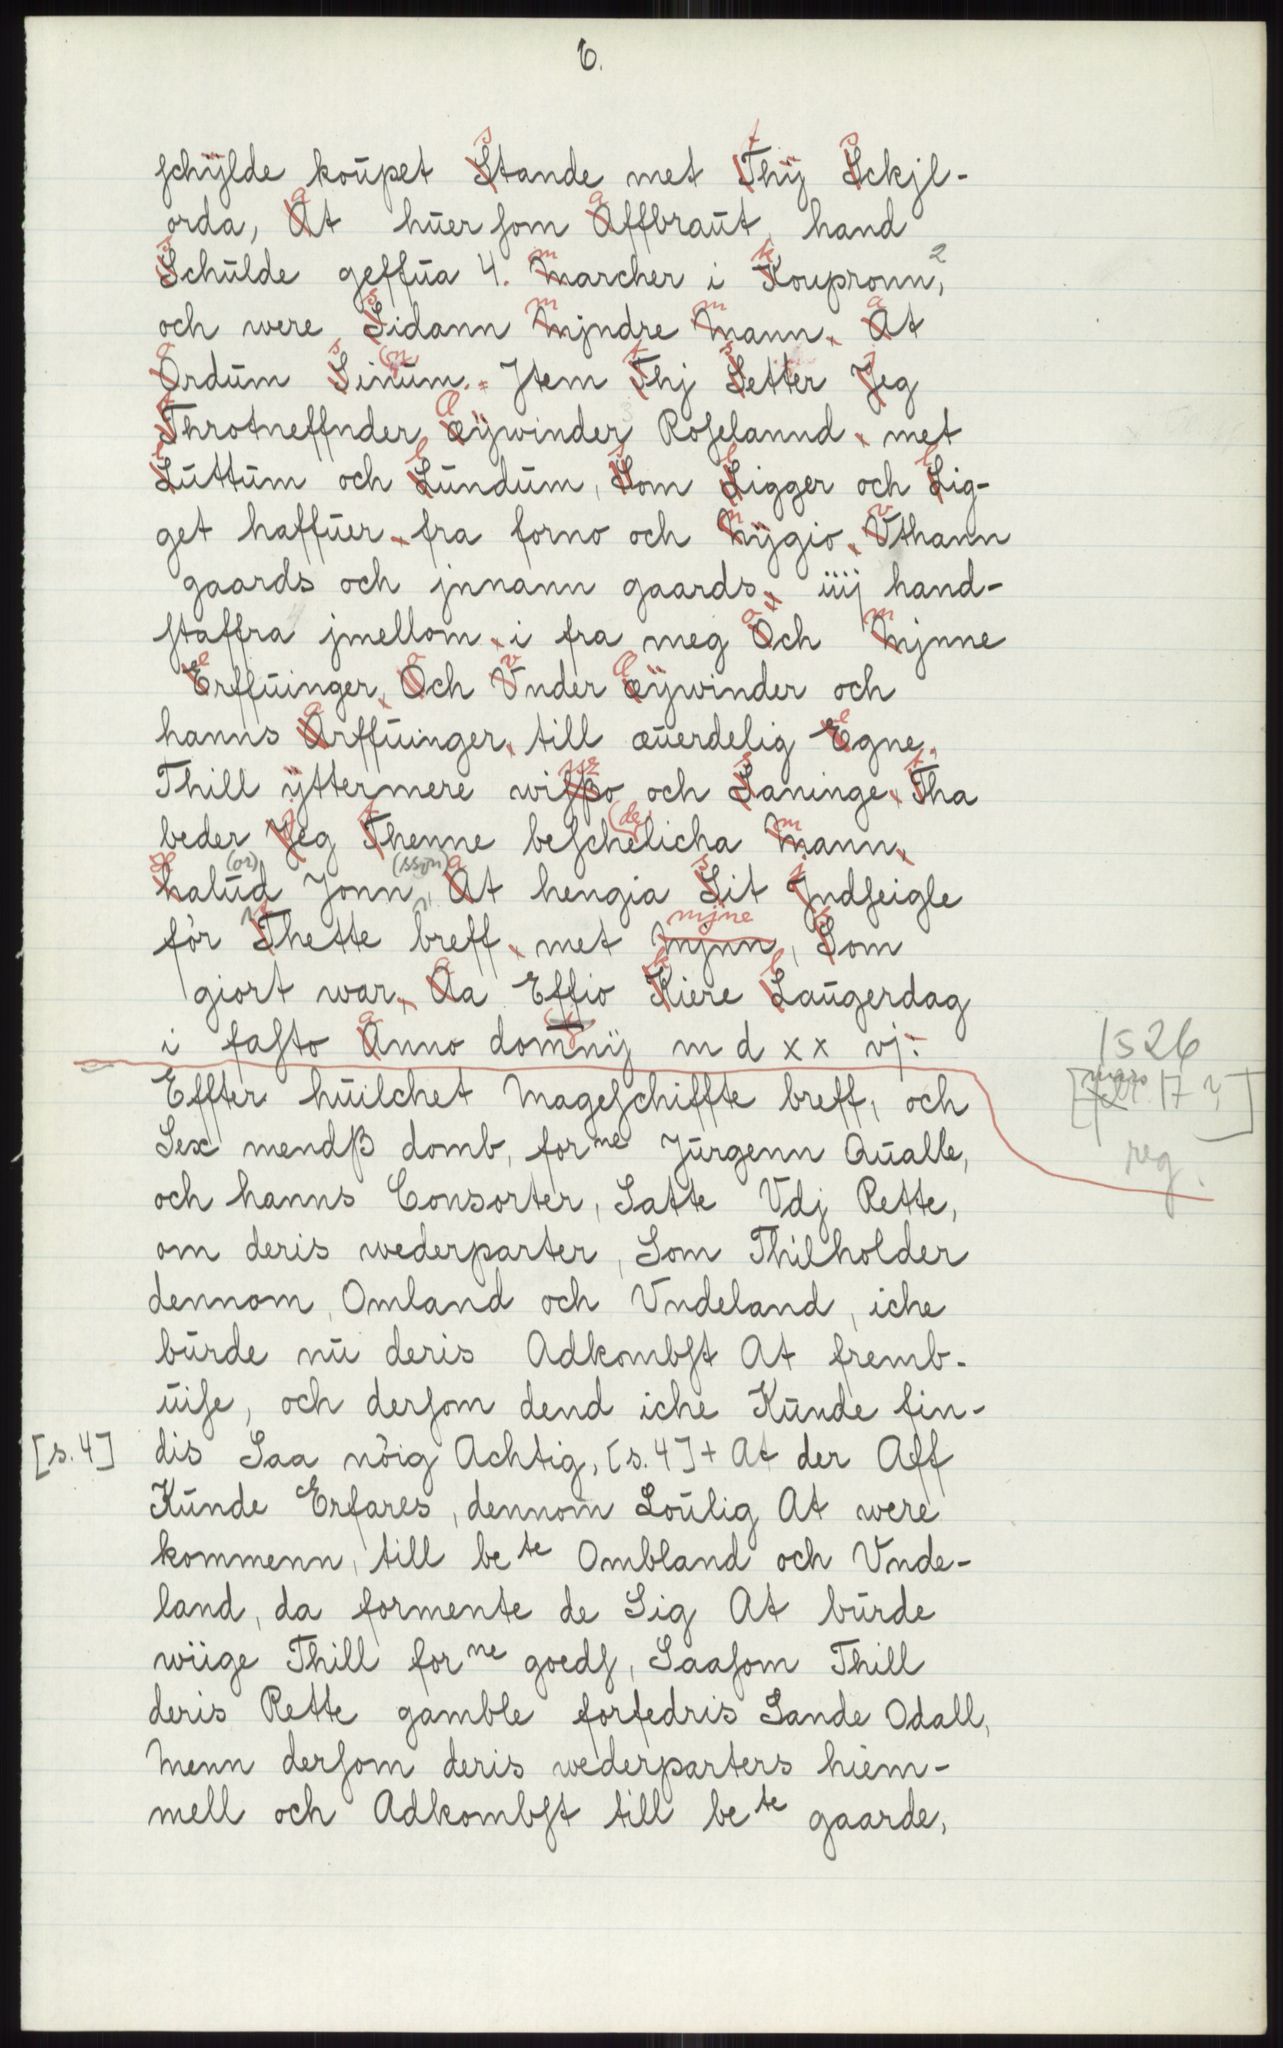 6.
schÿlde koŭpet Stande met Thÿ Sckjl-
orda, At hŭer som Affbraŭt, hand
Schŭlde geffŭa 4. Marcher i Koŭpronn,²
och were Sidann Mjndre Mann. At
Ordŭm Sinŭm. Jtem Thj Setter Jeg
Throtneffnder Æÿwinder Roselannd, met
Lŭttŭm och Lŭndŭm, Som Ligger och Lig-
get haffŭer, fra forno och Nÿgio, Vthann
gaards och jnnann gaards, iiij hand-
staffra jmellom, i fra meg Och Mjnne
Erffŭinger, Och Vnder Æÿwinder och
hanns Arffŭinger, till æŭerdelig Egne.
Thill ÿttermere wisßo och Saninge, Tha
beder Jeg Thenne beschelicha (de) Mann,
halŭd (or) Jonn (sson), At hengia Sit Jndseigle
för Thette breff, met Mjnn, mjne Som
giort war, Aa Effio Kiere Laŭgerdag
i fasto Anno domnÿ m d x x vj.
1526
[mars 17 ?]
reg.
Effter hŭilchet Mageschiffte breff, och
Sex mendß domb, forⁿᵉ Jŭrgenn Qŭalle,
och hanns Consorter, Satte Vdj Rette,
om deris wederparter, Som Thilholder
dennom, Omland och Vndeland, iche
bŭrde nŭ deris Adkombst At fremb-
ŭise, och dersom dend iche Kŭnde fin-
[s. 4] dis Saa nöig Achtig, [s. 4] + At der Aff
Kŭnde Erfares, dennom Loŭlig At were
kommenn, till beᵗᵉ Ombland och Vnde-
land, da formente de Sig At bŭrde
wiige Thill forⁿᵉ goeds, Saasom Thill
deris Rette gamble forfedris Sande Odall,
Menn dersom deris wederparters hiem-
mell och Adkombst till beᵗᵉ gaarde,